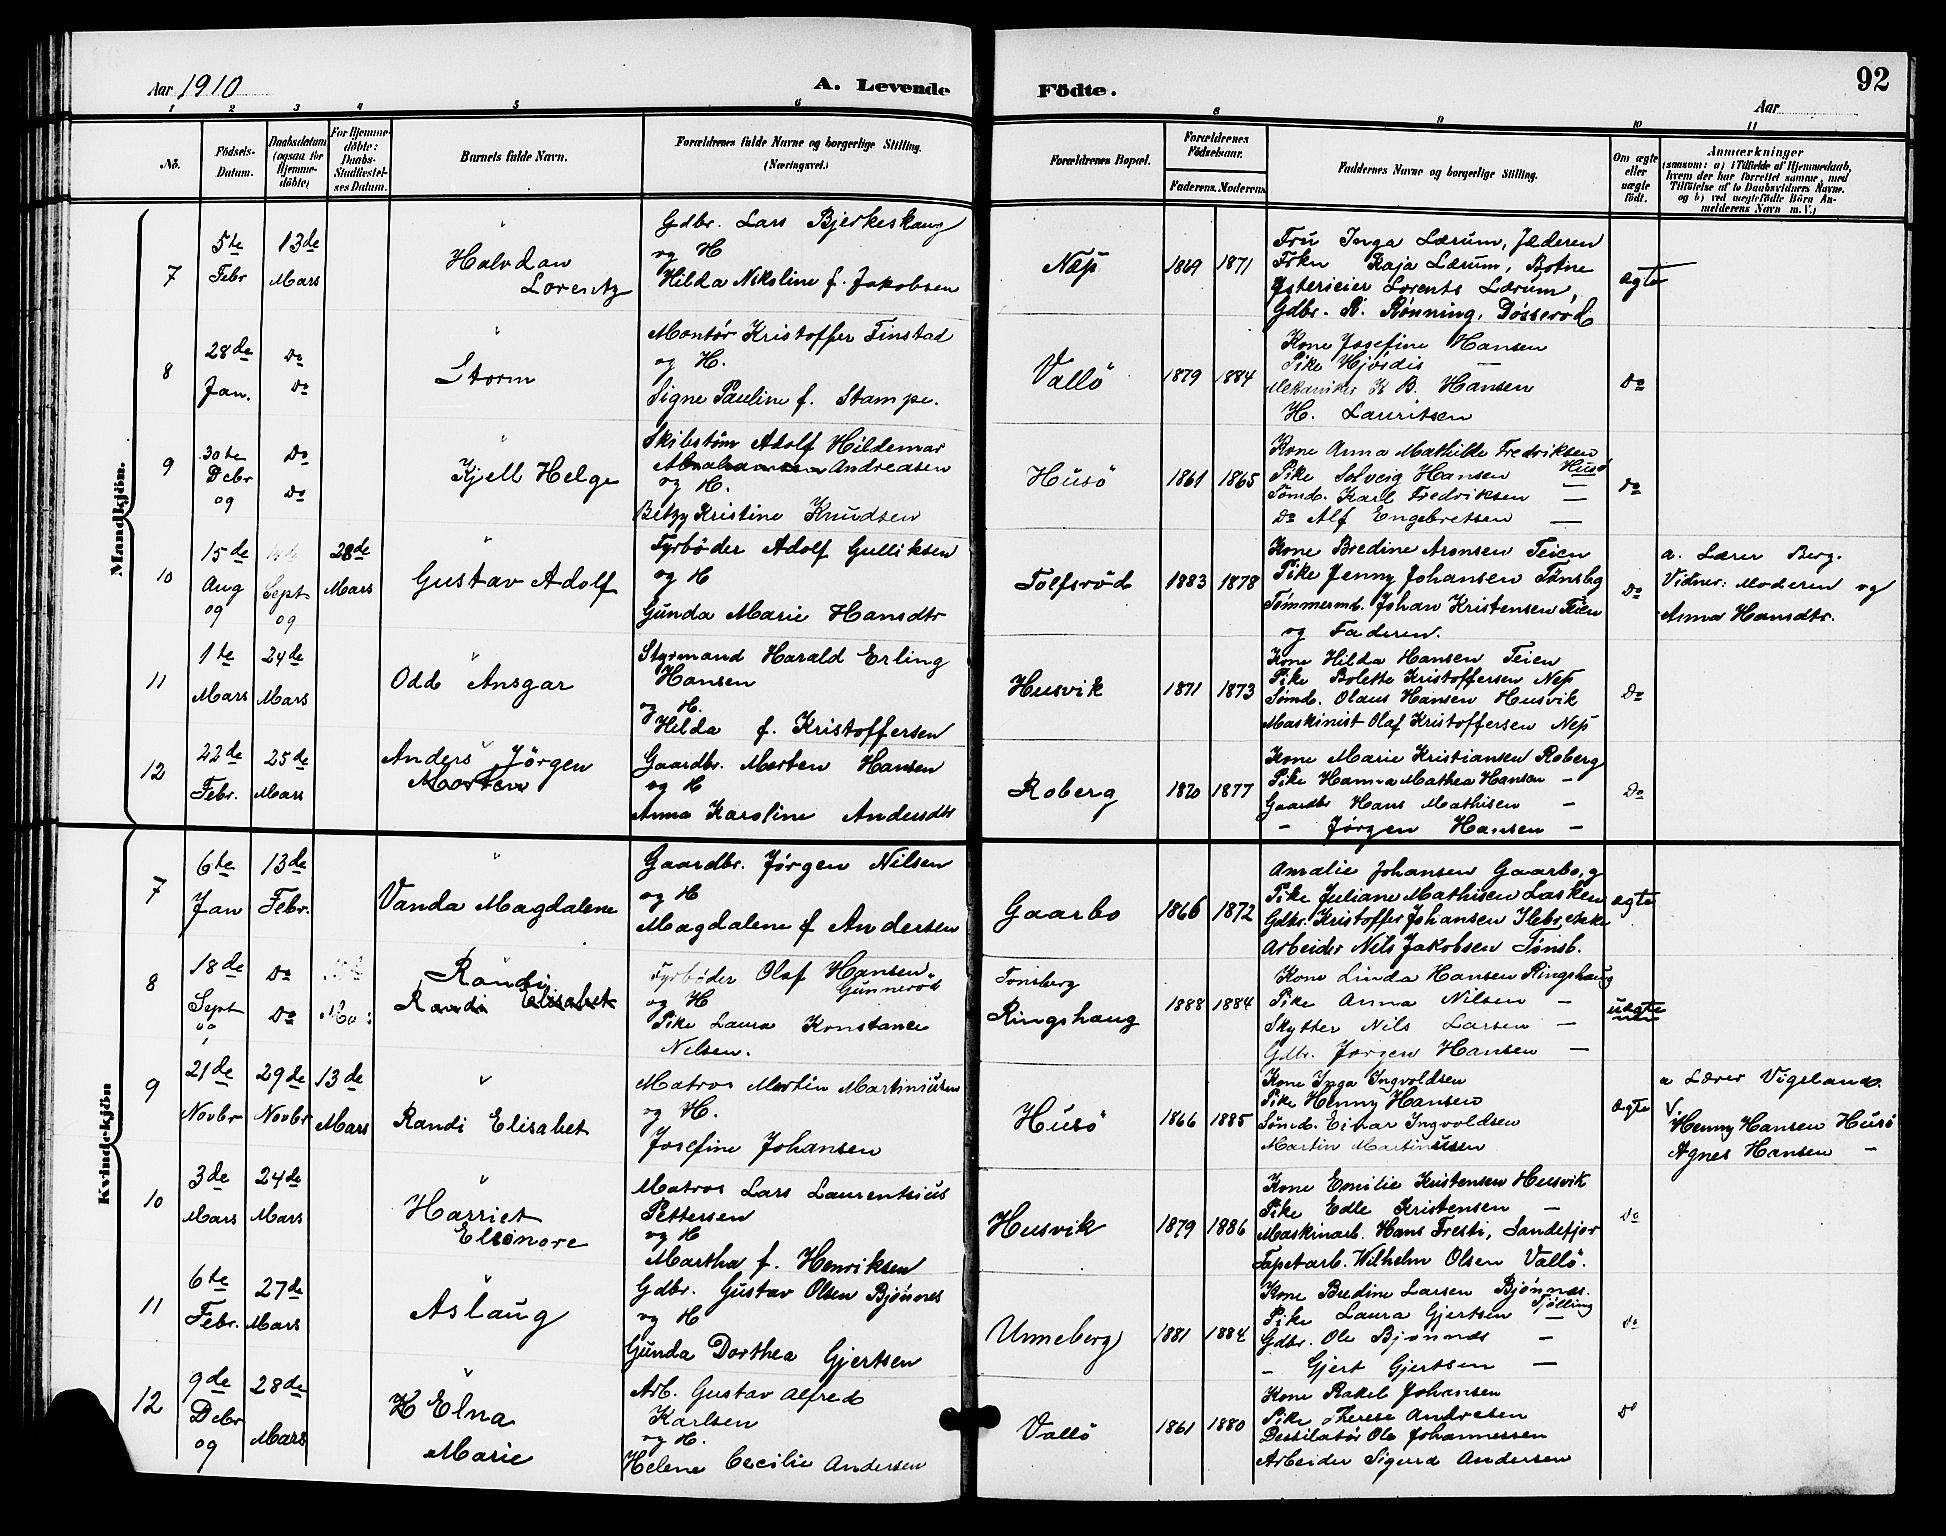 Aar 1910
A. Levende
Födte.
Aar
92
1 2 3 4 5 6
8 9 10 11
No.
Födsels-
Datum.
Daabsdatum
(ogsaa for
Hjemme-
döbte)
For Hjemme-
döbte:
Daabs-
Stadfæstel-
ses Datum.
Barnets fulde Navn.
Forældrenes fulde Navne og borgerlige Stilling.
(Næringsvei.)
Forældrenes Bopæl.
Forældrenes
Födselsaar.
Faderens. Moderens.
Faddernes Navne og borgerlige Stilling.
Om ægte
eller
uægte
födt.
Anmærkninger
(saasom: a) i Tilfælde af Hjemmedaab,
hvem der har forrettet samme, med
Tilföielse af to Daabsvidners Navne.
og b) ved uægtefödte Börn An-
melderens Navn m. V.)
Mandkjön.
7
5te
Febr
13de
Mars
Halvdan
Lorentz
Gdbr. Lars Bjerkeskaug
og H
Hilda Nikoline f. Jakobsen
Nøp
1869 1871
Fru Inga Lærum, Jæderen
Frkn Kaja Lærum, Botne
Lorents Lærum,
Gdbr. R. Rønning, Døsserød
ægte
8
28de
Jan.
Do
Do
Storm
Montør Kristoffer Finstad
og H.
Signe Pauline f. Stampe.
Vallö
1879 1884
Kone Josefine Hansen
Pike Hjørdis —
Mekaniker K B. Hansen
H. Lauritsen
Do
9
30te
Debr
09
Do
Do
Kjell Helge
Skibstøm Adolf Hildemar
Andreasen
og H.
Betzy Kristine Knudsen
Husö
1861 1865
Kone Anna Mathilde Fredriksen
Husö
Pike Solveig Hansen —
Tømd. Karl Fredriksen —
Do Alf Engebretsen —
Do
10
15de
Aug
09
Sept
09
28de
Mars
Gustav Adolf
Fyrbøder Adolf Gulliksen
og H
Gunda Marie Hansdtr
Tolfsrød
1883 1878
Kone Bredine Aronsen Teien
Pike Jenny Johansen Tønsbg
Tømmermd. Johan Kristensen Teien
og Faderen.
Do
a. Lærer Berg.
Vidner: Moderen og
Anna Hansdtr.
11
1te
Mars
24de
Mars
Odd Ansgar
Styrmand Harald Erling
Hansen
og H.
Hilda f. Kristoffersen
Husvik
1871 1873
Kone Hilda Hansen Teien
Pike Bolette Kristoffersen Nep
Sømd. Olaus Hansen Husvik
Maskinist Olaf Kristoffersen Nep
Do
12
22de
Febr.
25de
Mars
Anders Jørgen
Morten
Gaardbr. Morten Hansen
og H
Anna Karoline Andersdtr
Roberg
1870 1877
Kone Marie Kristiansen Roberg
Pike Hanna Mathea Hansen —
Gaardbr Hans Mathisen —
— Jørgen Hansen —
Do
Kvindekjön
7
6te
Jan
13de
Febr.
Vanda Magdalene
Gaardbr. Jørgen Nilsen
og H
Magdalene f Andersen
Gaarbo
1866 1872
Amalie Johansen Gaarbo
Pike Juliane Mathisen Lasken
Gdbr. Kristoffer Johansen Ilebrekke
Arbeider Nils Jakobsen Tønsb.
ægte
8
18de
Sept
Do
Do
Randi
Randi Elisabet
Fyrbøder Olaf Hansen.
Gunnerød
og H
Pike Laura Konstance
Nilsen.
Tønsberg
Ringshaug
1888 1884
Kone Linda Hansen Ringshaug
Pike Anna Nilsen —
Skytter Nils Larsen —
Gdbr. Jørgen Hansen —
uægte
9
21de
Novbr
29de
Novbr
13de
Mars
Randi Elisabet
Matros Martin Martiniussen
og H.
Josefine Johansen
Husö
1866 1885
Kone Inga Ingvoldsen
Pike Henny Hansen
Sømd. Einar Ingvoldsen
Martin Martinussen
ægte
a Lærer Vigeland.
V.
Henny Hansen Husö
Agnes Hansen —
10
3de
Mars
24de
Mars
Harriet
Elionore
Matros Lars Laurentsius
Pettersen
og H
Martha f. Henriksen
Husvik
1879 1886
Kone Emilie Kristensen Husvik
Pike Edle Kristensen —
Maskinarb. Hans Fresti, Sandefjor
Tapetarb. Wilhelm Olsen Vallö.
Do
11
6te
Febr.
27de
Mars
Aslaug
Gdbr. Gustav Olsen Bjønnes
og H
Gunda Dorthea Gjertsen
Unneberg
1881 1884
Kone Bredine Larsen Bjønnes.
Tjølling
Pike Laura Gjertsen —
Gdbr. Ole Bjønnes —
— Gjert Gjertsen —
Do
12
9de
Debr
09
28de
Mars
Elna
Marie
Arb. Gustav Alfred
Karlsen
og H.
Helene Cecilie Andersen
Vallö
1861 1880
Kone Rakel Johansen
Pike Therese Andresen
Destilatør Ole Johannessen
Arbeider Sigurd Andersen
Do